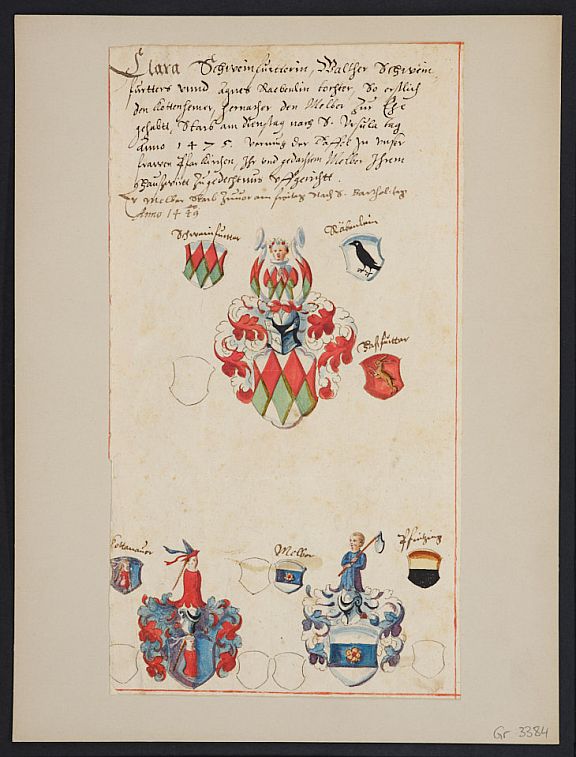 Clara Schweinfurtterin, Walther Schwein
furtters vnnd Agnes Raebenlin tochter, So erstlich
den Kottenhemer, hernacher den Melber zur Ehe
gehabtt, Starb am dienstag nach S. Ursula tag
Anno 1475. vnnd der in unser
frawen Pfarkirchen, Ihr vnd gedachtem Melber Ihrem
Haußwirtt zu gedechtnus vffgericht.
Er Melber Starb zuuor am freitag nach S. Barthol. tag
Anno 14
Schweinfurtter
Räbenlein
Haßfurtter
Kottanauer
Melber
Pfintzing
Gr 3384